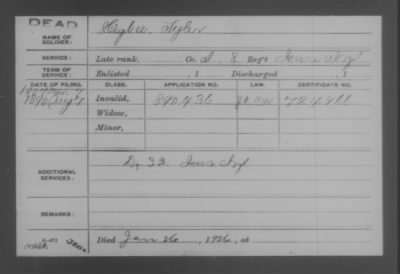 DEAD
NAME OF SOLDIER: Hegbee, Tyler
SERVICE: Late rank, Co. I, 8 Reg't Iowa Inf
TERM OF SERVICE: Enlisted , 1 Discharged , 1
DATE OF FILING. CLASS. APPLICATION NO. LAW. CERTIFICATE NO.
1890 Aug 7 Invalid, 890.436
Widow,
Minor,
ADDITIONAL SERVICES: D, 32 Iowa Inf
REMARKS:
Died Jan 26, 1926, at
Iowa